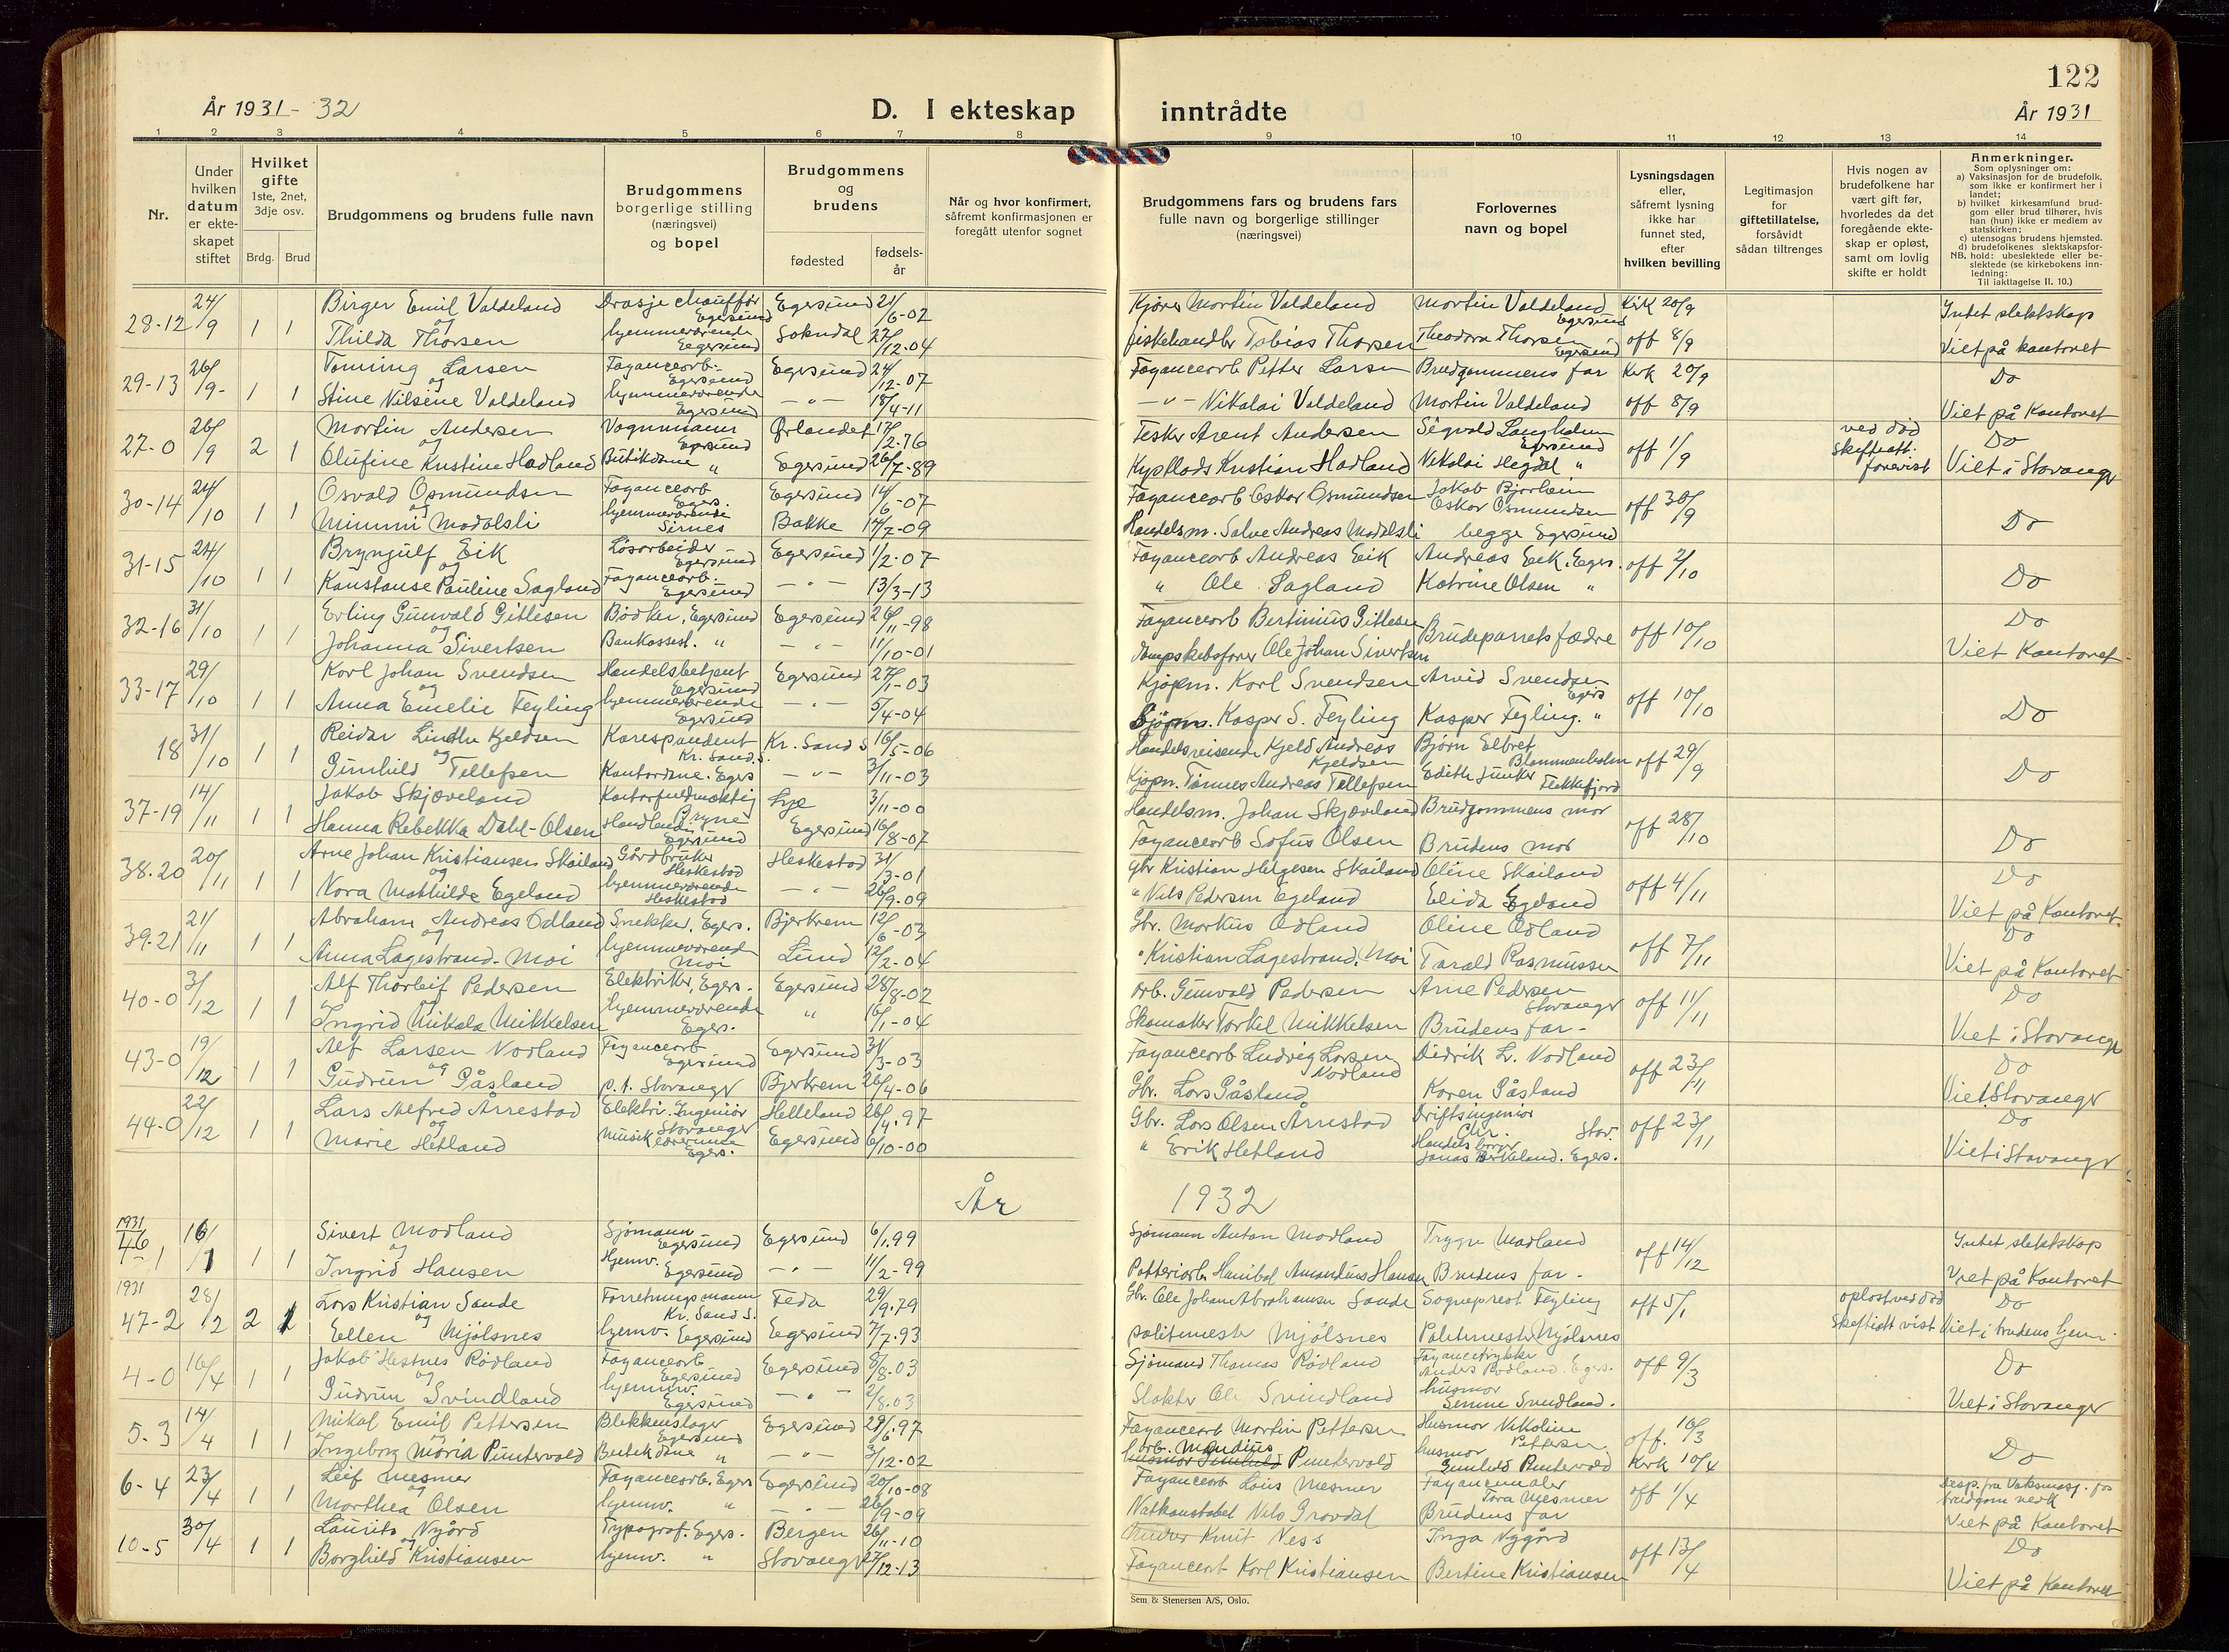 122
År 1931-32
D. I ekteskap inntrådte
År 1931
1 2 3 4 5 6 7 8 9 10 11 12 13 14
Nr.
Under hvilken datum er ekteskapet stiftet
Hvilket gifte 1ste, 2net, 3dje osv.
Brdg. Brud
Brudgommens og brudens fulle navn
Brudgommens borgerlige stilling (næringsvei) og bopel
Brudgommens og brudens
fødested
fødselsår
Når og hvor konfirmert, såfremt konfirmasjonen er foregått utenfor sognet
Brudgommens fars og brudens fars fulle navn og borgerlige stillinger (næringsvei)
Forlovernes navn og bopel
Lysningsdagen eller, såfremt lysning ikke har funnet sted, efter hvilken bevilling
Legitimasjon for giftetillatelse, forsåvidt sådan tiltrenges
Hvis nogen av brudefolkene har vært gift før, hvorledes da det foregående ekteskap er opløst, samt om lovlig skifte er holdt
Anmerkninger.
Som oplysninger om:
a) Vaksinasjon for de brudefolk, som ikke er konfirmert her i landet;
b) hvilket kirkesamfund brudgom eller brud tilhører, hvis han (hun) ikke er medlem av statskirken;
c) utensogns brudens hjemsted.
d) brudefolkenes slektskapsforhold: ubeslektede eller beslektede (se kirkebokens innledning:
NB. Til iakttagelse II. 10.)
28-12 24/9 1 1 Birger Emil Valdeland Drosje chauffør Egersund Egersund 21/6-02 Kjører Martin Valdeland Martin Valdeland Egersund Kirk 20/9 Intet slektskap
og Thilda Thorsen hjemmeværende Egersund Sokndal 27/12-04 fiskehandler Tobias Thorsen Theodora Thorsen Egersund off 8/9 Viet på kontoret
29-13 26/9- 1 1 Tønning Larsen Fayancearb. Egersund Egersund 24/12-07 Fayancearb Petter Larsen Brudgommens far Kirk 20/9 Do
og Stine Nilsine Valdeland hjemmeværende Egersund -"- 18/4-11 -"- Nikolai Valdeland Martin Valdeland off 8/9 Viet på Kontoret
27-0 26/9 2 1 Martin Andersen Vognmann Egersund Ørlandet 17/2-76 Fisker Arent Andersen Sigvald Langholm Egersund off 1/9 ved død Do
og Olufine Kristine Hadland Butikdame " Egersund 26/7-89 Kristian Hadland Nikolai Hegdal " skifteatt. forevist Viet i Stavanger
30-14 24/10 1 1 Osvald Osmundsen Fayancearb Egers. Egersund 14/6-07 Fayancearb Oskar Osmundsen Jakob Bjorheim off 30/9
og Mimmi Modalsli hjemmeværende Sirnes Bakke 14/7-09 Handelsm. Salve Andreas Modalsli Oskar Osmundsen begge Egersund Do
31-15 24/10 1 1 Bryngulf Eik Løsarbeider Egersund Egersund 1/2-07 Fayancearb Andreas Eik Andreas Eik. Egers. off 2/10
og Konstanse Pauline Sagland Fayancearb. Egersund -"- 13/3-13 " Ole Sagland Katrine Olsen " Do
32-16 31/10 1 1 Erling Gunvald Gitlesen Bødker, Egersund Egersund 26/11-98 Fayancearb Bertinius Gitlesen Brudeparrets fædre off 10/10 Do
og Johanna Sivertsen Bankassist. " -"- 11/10-01 Dampskibsfører Ole Johan Sivertsen Viet Kontoret
33-17 29/10 1 1 Karl Johan Svendsen Handelsbetjent Egersund Egersund 27/1-03 Kjøpm. Karl Svendsen Arvid Svendsen Egers off 10/10
og Anna Emelie Feyling hjemmeværende Egersund -"- 5/4-04 Kjøpm. Kasper S. Feyling Kasper Feyling. " Do
18 31/10 1 1 Reidar Lindtner Kjeldsen Korespondent Kr. Sand S. Kr. Sand S 16/5-06 Handelsreisende Kjeld Andreas Kjeldsen Bjørn Elbret Blommenholm off 29/9
og Gunhild Tellefsen Kontordame. Egers -"- 3/11-03 Kjøpm. Tønnes Andreas Tellefsen Edith Junker Flekkefjord Do
37-19 14/11 1 1 Jakob Skjæveland Kontorfuldmæktig Bryne Lye 3/11-00 Handelsm. Johan Skjæveland Brudgommens mor off 28/10
Hanna Rebekka Dahl-Olsen Handlende Egersund Egersund 16/8-07 Fayancearb Sofus Olsen Brudens mor Do
38.20 20/11 1 1 Arne Johan Kristiansen Skailand Gårdbruker Heskestad Heskestad 31/3-01 Gbr Kristian Helgesen Skailand Oline Skailand off 4/11 Do
og Nora Mathilde Egeland hjemmeværende Heskestad -"- 26/9-09 " Nils Pedersen Egeland Elida Egeland Viet på Kontoret.
39.21 21/11 1 1 Abraham Andreas Odland Snekker, Egers. Bjerkrem 12/6-03 Gbr. Markus Odland Oline Odland off 7/11 Do
og Anna Lagestrand. Moi hjemmeværende Moi Lund 12/2-04 " Kristian Lagestrand, Moi Tarald Rasmussen Viet på Kontoret
40-0 3/12 1 1 Alf Thorleif Pedersen Elektriker, Egers. Egersund 28/8-02 Arb. Gunvald Pedersen Arne Pedersen Stavanger off 11/11 Do
og Ingrid Mikala Mikkelsen hjemmeværende Egers. " 16/1-04 Skomaker Torkel Mikkelsen Brudens far- Viet i Stavanger
43-0 19/12 1 1 Alf Larsen Nodland Fayancearb Egersund Egersund 31/3-03 Fayancearb Ludvig Larsen Nodland Didrik L. Nodland off 23/11 Do
og Gudrun Gåsland p.t. Stavanger Bjerkrem 26/4-06 Gbr. Lars Gåsland Karen Gåsland Viet Stavanger
44-0 22/12 1 1 Lars Alfred Årrestad Elektr. Ingeniør Stavanger Helleland 26/4.97 Gbr. Lars Olsen Årrestad Driftsingeniør Chr. Stav. off 23/11 Do
og Marie Hetland Musiklærerinne Egers. Egersund 6/10-00 " Erik Hetland Jonas Birkeland. Egers. Viet i Stavanger
År 1932
1931 46-1 16/1 1 1 Sivert Modland Sjømann Egersund Egersund 6/1.99 Sjømann Anton Modland Trygve Modland off 14/12 Intet slektskap
og Ingrid Hansen Hjemv. Egersund -"- 11/2-99 Potteriarb. Hanibal Amandius Hansen Brudens far. Viet på Kontoret
1931 47-2 28/2 2 1 Lars Kristian Sande Forretningsmann Kr. Sand S. Feda 29/9.79 Gbr. Ole Johan Abrahamsen Sande Sogneprest Feyling off 5/1 opløst ved død Do
og Ellen Mjølsnes hjemv. Egersund Egersund 7/7.93 politimester Mjølsnes Politimester Mjølsnes skifteatt vist Viet i brudens hjem.
4-0 16/4 1 1 Jakob Hestnes Rødland Fayancearb Egersund Egersund 8/8.03 Sjømand Thomas Rødland Fayancetrykker Anders Rødland. Egers. off 9/3 Do
og Gudrun Svindland hjemmv. Egersund -"- 2/8.03 Slakter Ole Svindland husmor Semine Svindland. Viet i Stavanger
5.3 14/4 1 1 Mikal Emil Pettersen Blikkenslager Egersund Egersund 29/6.97 Fayancearb Martin Pettersen Husmor Nikoline Pettersen off. 16/3
og Ingeborg Maria Puntervold Butikdame " -"- 3/12-02 Arb. Mandius Puntervold husmor Gunhild Puntervold Kirk 10/4 Do
6-4 23/4 1 1 Leif Mesmer Fayancearb. Egers Egersund 20/10-08 Fayancearb Louis Mesmer Fayancemaler Tora Mesmer off 1/4
og Marthea Olsen hjemv. " -"- 26/9-09 Natkonstabel Nils Brudens far Viet på Kontoret
10-5 30/4 1 1 Laurits Nygård Typograf. Egers. Bergen 26/11-10 Murer Knut Ness Inga Nygård off 13/4 Do
og Borghild Kristiansen hjemv. " Stavanger 27/12-13 Fayancearb Karl Kristiansen Bertine Kristiansen Viet på Kontoret
Sem & Stenersen A/S, Oslo.